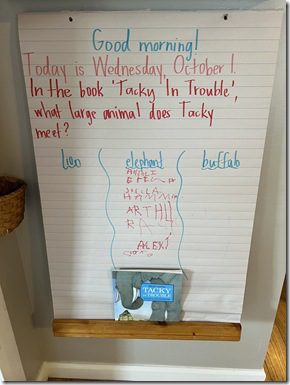 Good morning!
Today is Wednesday, October 1.
In the book 'Tacky In Trouble',
what large animal does Tacky
meet?
lion elephant buffalo
ARTHU
RAJ
ALEXJ
TACKY
IN TROUBLE